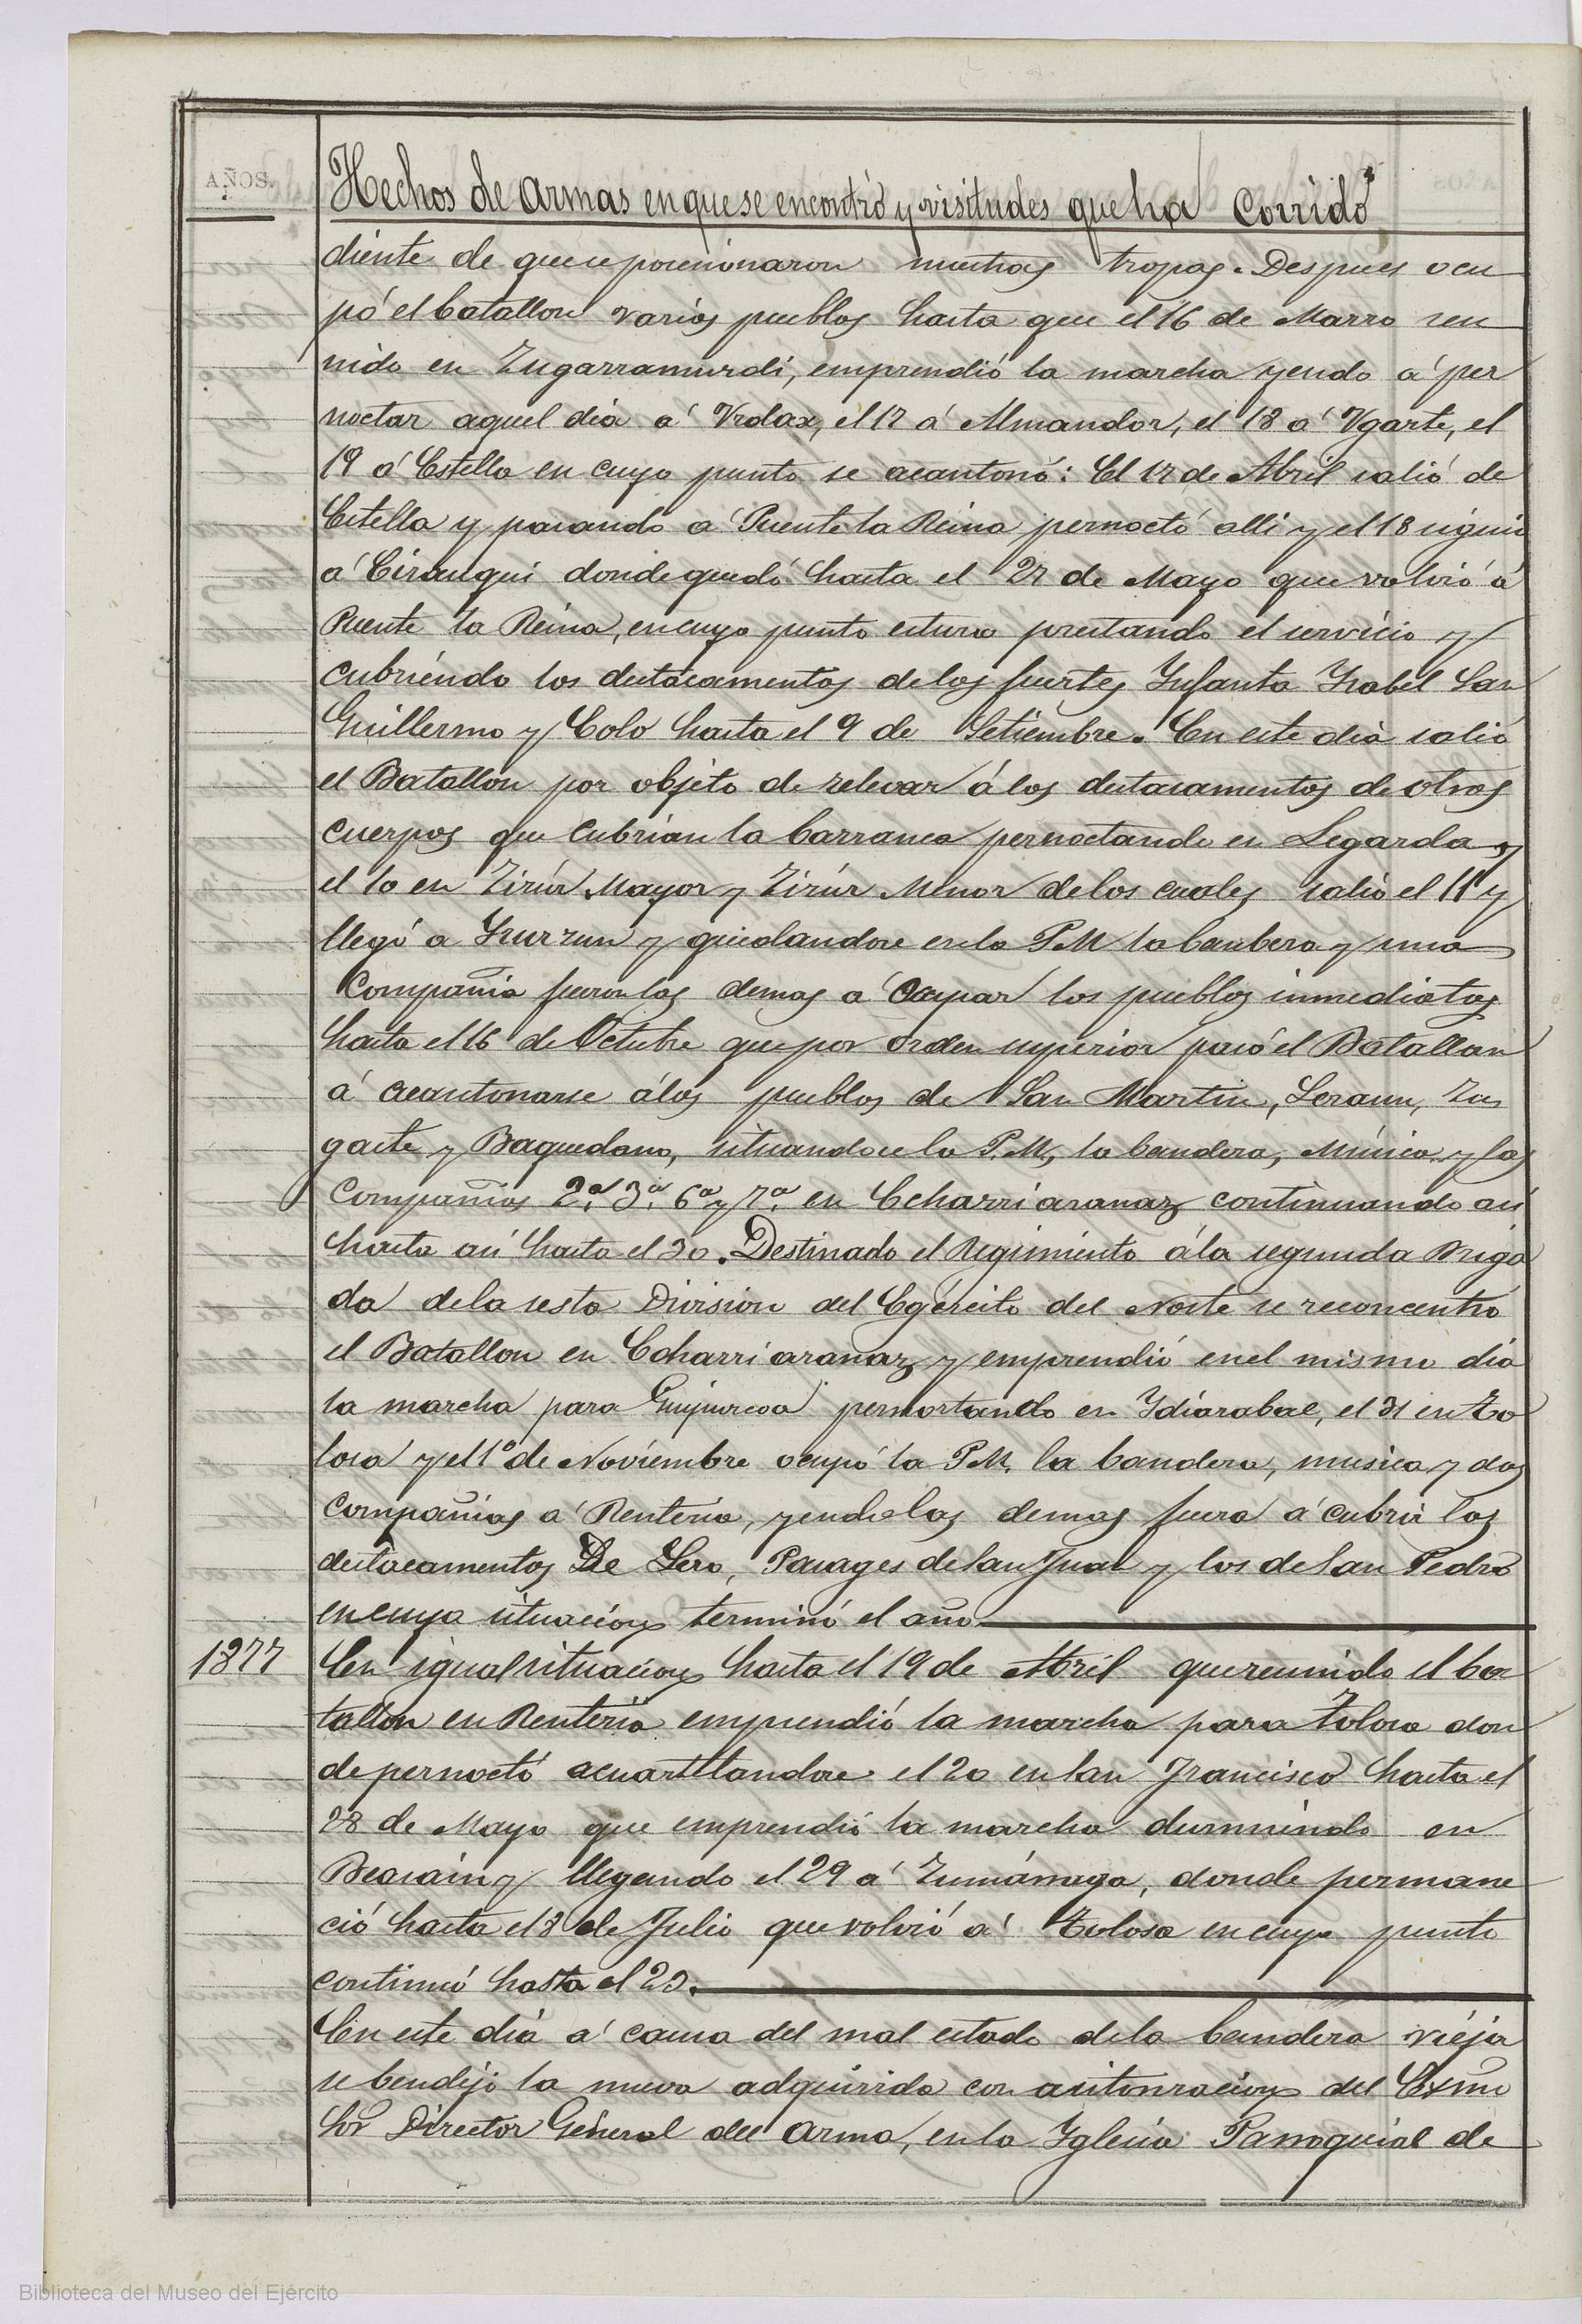 AÑOS.
Hechos de armas en que se encontró y visitudes que ha corrido
diente de que se posesionaron muchas tropas. Despues ocu
pó el batallon varios pueblos hasta que el 16 de Marzo reu
nido en Zugarramurdi, emprendió la marcha yendo á per
noctar aquel dia á Vrdax, el 17 á Almandoz, el 18 á Vgarte, el
19 á Estella en cuyo punto se acantonó: El 17 de Abril salió de
Estella y pasando á Puente la Reina pernoctó alli y el 18 siguió
á Cirauqui donde quedó hasta el 27 de Mayo que volvió á
Puente la Reina, en cuyo punto estuvo prestando el servicio y
cubriendo los destacamentos de los fuertes Infanta Isabel San
Guillermo y Colo hasta el 9 de Setiembre. En este dia salió
el Batallon por objeto de relevar á los destacamentos de otros
cuerpos que cubrian la barranca pernoctando en Legarda y
el 10 en Zizúr Mayor y Zizúr Menor de los cuales salió el 11 y
llegó a Irurzun y quedandose en la P.M la bandera y una
Compañia fueron las demas á ocupar los pueblos inmediatos
hasta el 16 de Octubre que por orden superior pasó el Batallan
á acantonarse á los pueblos de San Martin, Leraun, Zu
gaste y Baquedano, situandose la P.M, la bandera, Música y las
Compañias 2ª. 3ª. 6ª y 7ª. en Echarri aranaz continuando asi
hasta asi hasta el 30. Destinado el Regimiento á la segunda Briga
da de la sesta Division del Egército del Norte se reconcentró
el Batallon en Echarri aranaz y emprendió en el mismo dia
la marcha para Guipuzcoa pernortando en Idiarabal, el 31 en To
losa y el 1º de Noviembre ocupó la P.M. la bandera, musica y dos
compañias á Renteria, yendo las demas fuera á cubrir los
destacamentos De Lero, Pasages de San Juan y los de San Pedro
en cuya situacion terminó el año.
1877 En igual situacion hasta el 19 de Abril que reunido el ba
tallon en Renteria emprendió la marcha para Tolosa don
de pernoctó acuartelandose el 20 en San Francisco hasta el
28 de Mayo que emprendió la marcha durmiendo en
Beasain y llegando el 29 á Zumárraga, donde permane
ció hasta el 8 de Julio que volvió á Tolosa en cuyo punto
continuó hasta el 25.
En este dia á causa del mal estado de la bandera vieja
se bendijo la nueva adquirida con autorizacion del Exmo
Sor Director General del arma, en la Iglesia Parroquial de
Biblioteca del Museo del Ejército